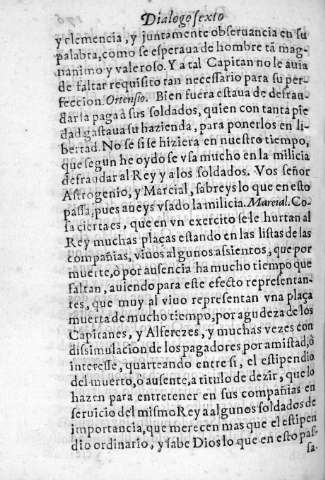 Dialogo sexto
y clemencia, y juntamente obseruancia en su
palabra, como se esperaua de hombre tã mag-
nanimo y valeroso. Y a tal Capitan no le auia
de faltar requisito tan necessario para su per-
feccion. Ortensio. Bien fuera estaua de defrau-
dar la paga à sus soldados, quien con tanta pie
dad gastaua su hazienda, para ponerlos en li-
bertad. No se si se hiziera en nuestro tiempo,
que segun he oydo se vsa mucho en la milicia
defraudar al Rey y a los soldados. Vos señor
Astrogenio, y Marcial, sabreys lo que en esto
passa, pues aueys vsado la milicia. Marcial. Co
sa cierta es, que en vn exercito se le hurtan al
Rey muchas plaças estando en las listas de las
compañias, viuos algunos assientos, que por
muerte, ò por ausencia ha mucho tiempo que
faltan, auiendo para este efecto representan-
tes, que muy al viuo representan vna plaça
muerta de mucho tiempo, por agudeza de los
Capitanes, y Alferezes, y muchas vezes con
dissimulacion de los pagadores por amistad, ò
interesse, quarteando entre si, el estipendio
del muerto, ò ausente, a titulo de dezir, que lo
hazen para entretener en sus compañias en
seruicio del mismo Rey a algunos soldados de
importancia, que merecen mas que el estipen
dio ordinario, y sabe Dios lo que en esto pas-
sa.